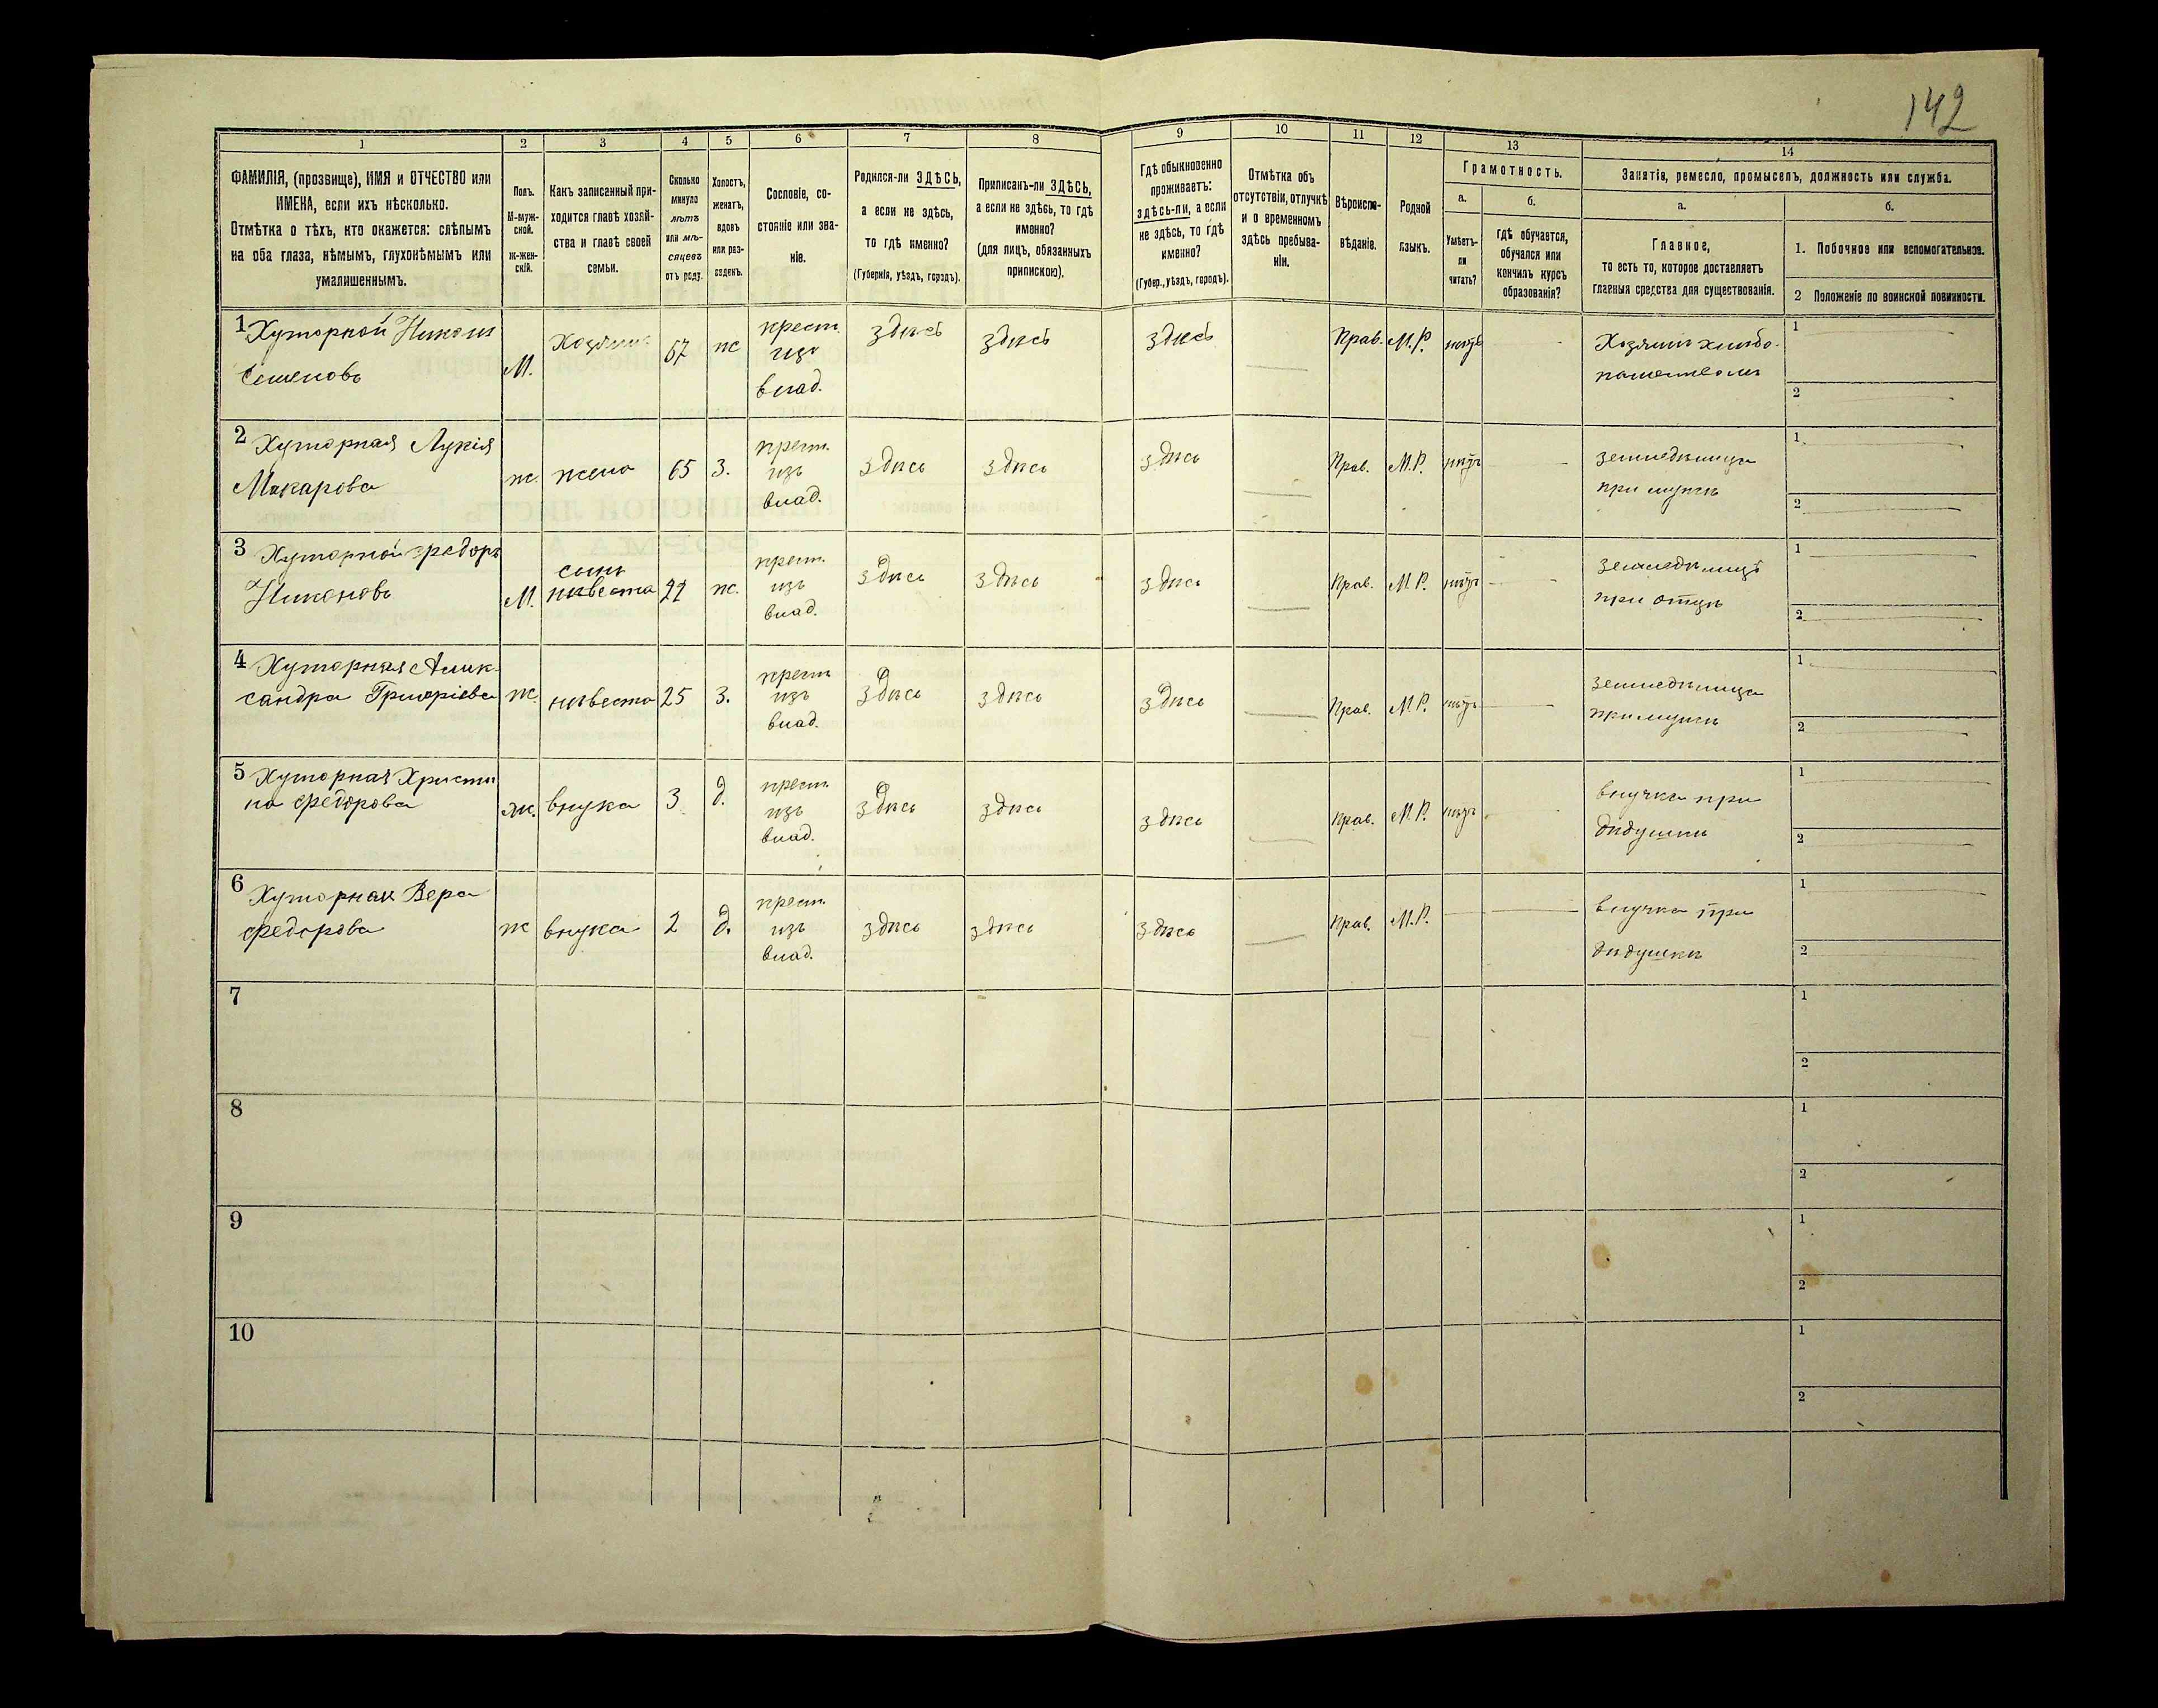 142
1 2 3 4 5 6 7 8 9 10 11 12 13 14
ФАМИЛІЯ, (прозвище), ИМЯ и ОТЧЕСТВО или
ИМЕНА, если ихъ нѣсколько.
Отмѣтка о тѣхъ, кто окажется: слѣпымъ
на оба глаза, нѣмымъ, глухонѣмымъ или
умалишеннымъ.
Полъ.
М-муж-
ской.
Ж-жен-
скій.
Какъ записанный при-
ходится главѣ хозяй-
ства и главѣ своей
семьи.
Сколько
минуло
лѣтъ
или мѣ-
сяцевъ
отъ роду.
Холостъ,
женатъ,
вдовъ
или раз-
веденъ.
Сословіе, со-
стояніе или зва-
ніе.
Родился-ли ЗДѢСЬ,
а если не здѣсь,
то гдѣ именно?
(Губернія, уѣздъ, городъ).
Приписанъ-ли ЗДѢСЬ,
а если не здѣсь, то гдѣ
именно?
(для лицъ, обязанныхъ
припискою).
Гдѣ обыкновенно
проживаетъ:
здѣсь-ли, а если
не здѣсь, то гдѣ
именно?
(Губер., уѣздъ, городъ).
Отмѣтка объ
отсутствіи, отлучкѣ
и о временномъ
здѣсь пребыва-
ніи.
Вѣроиспо-
вѣданіе.
Родной
языкъ.
Грамотность.
а.
Умѣетъ-
ли
читать?
б.
гдѣ обучается,
обучался или
кончилъ курсъ
образованія?
Занятіе, ремесло, промыселъ, должность или служба.
а.
Главное,
то есть то, которое доставляетъ
главныя средства для существованія.
б.
1. Побочное или вспомогательное.
2 Положеніе по воинской повинности.
1 Хуторной Никон
Семеновъ
М.
Хозяинъ
67
ж
крест.
изъ
влад.
здѣсь
здѣсь
здѣсь
Прав.
М.Р.
нѣтъ
Хозяинъ хлѣбо-
пашествомъ
1
2
2 Хуторная Лукія
Макарова
ж.
жена
65
з.
крест.
изъ
влад.
здѣсь
здѣсь
здѣсь
Прав.
М.Р.
нѣтъ
земледѣлица
при мужѣ
1
2
3 Хуторной Федоръ
Никоновъ
М.
сынъ
невѣста
27
ж.
крест.
изъ
влад.
здѣсь
здѣсь
здѣсь
Прав.
М.Р.
нѣтъ
земледѣлицъ
при отцѣ
1
2
4 Хуторная Алек-
сандра Григоріева
ж.
невѣста
25
з.
крест
изъ
влад.
здѣсь
здѣсь
здѣсь
Прав.
М.Р.
нѣтъ
земледѣлица
при мужѣ
1
2
5 Хуторная Христи
на Федорова
ж.
внука
3
д.
крест.
изъ
влад.
здѣсь
здѣсь
здѣсь
Прав.
М.Р.
нѣтъ
внучка при
дѣдушкѣ
1
2
6 Хуторная Вера
Федорова
ж
внука
2
д.
крест.
изъ
влад.
здѣсь
здѣсь
здѣсь
Прав.
М.Р.
внучка при
дѣдушкѣ
1
2
7
1
2
8
1
2
9
1
2
10
1
2